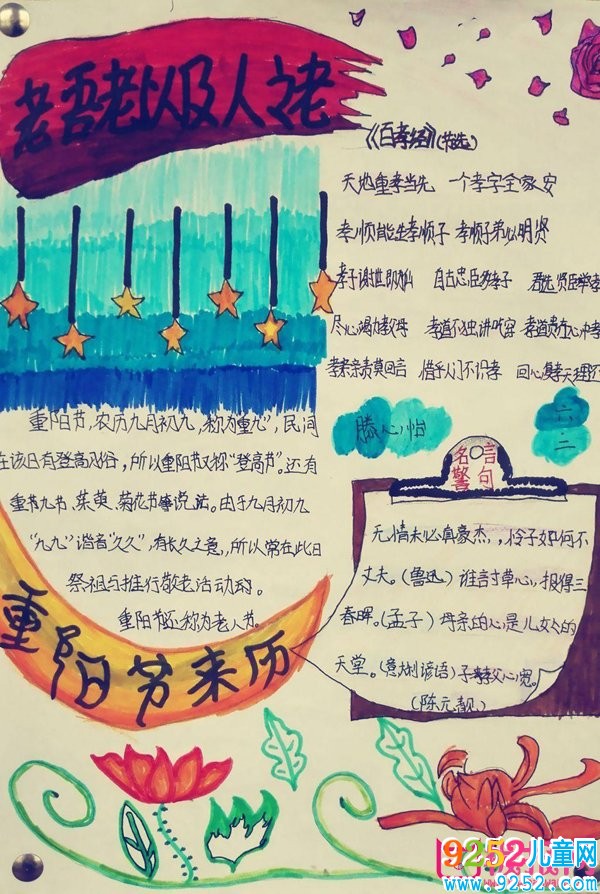 老吾老以及人之老
《百孝经》(节选)
天地重孝当先 一个孝字全家安
孝顺能生孝顺子 孝顺子弟必明贤
自古忠臣多孝子 君选贤臣举孝
尽心竭力孝父母 孝道不独讲吃穿 孝道贵在心中孝
孝亲亲责莫回言 惜乎人间不识孝 回心复孝天理还
重阳节,农历九月初九,称为"重九",民间
在该日有登高习俗,所以重阳节又称"登高节"。还有
重九节、茱萸、菊花节等说法。由于九月初九
"九九"谐音"久久",有长久之意,所以常在此日
祭祖与推行敬老活动的。
重阳节还称为老人节。
重阳节来历
滕心怡
六
二
名言
警句
无情未必真豪杰,怜子如何不
丈夫。(鲁迅) 谁言寸草心,报得三
春晖。(孟子) 母亲的心是儿女的
天堂。(意大利谚语)子孝父心宽。
(陈元靓)
9252儿童网
www.9252.com